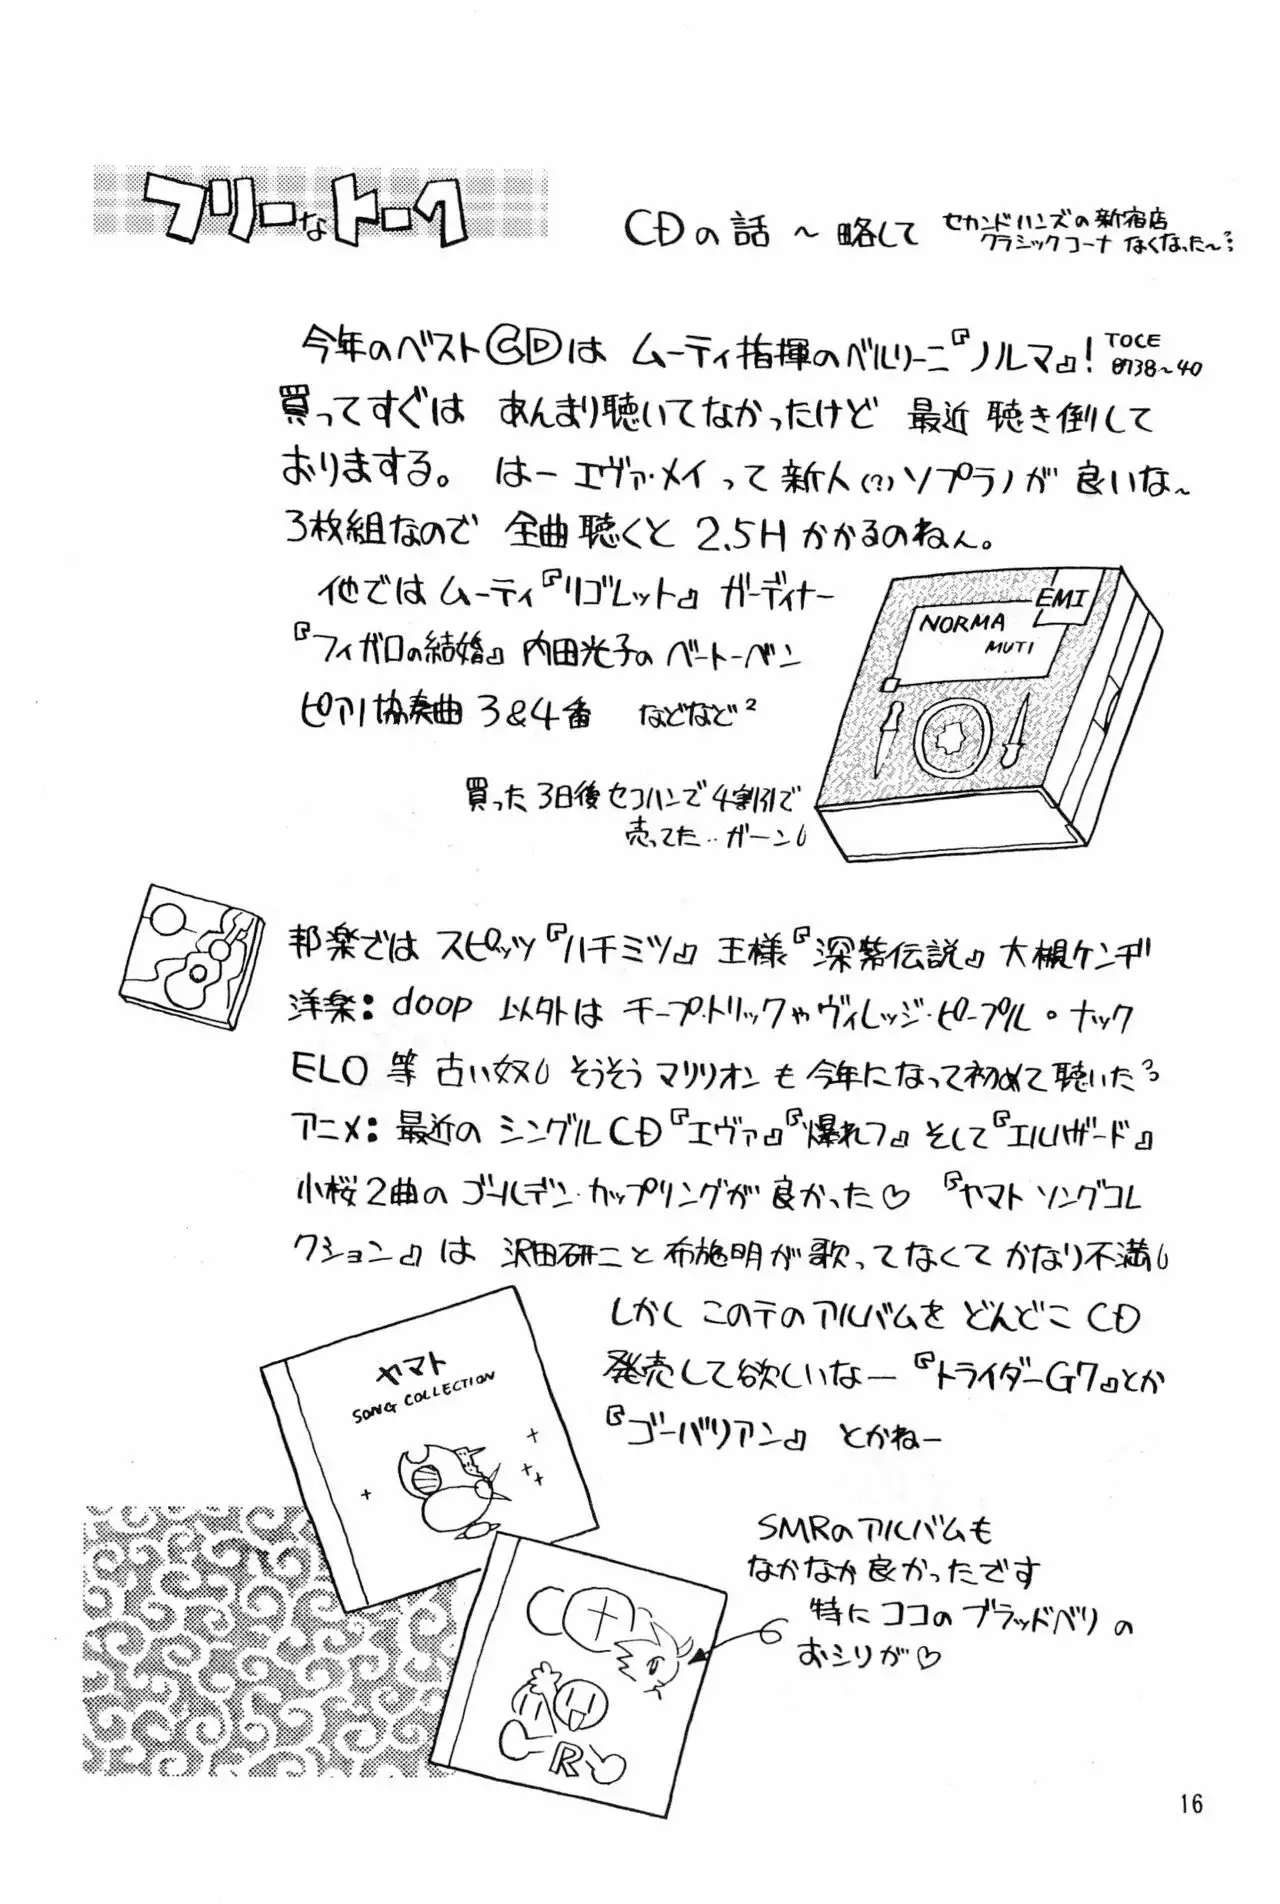 フリーなトーク
CDの話 〜 略して
セカンドハンズの新宿店
クラシックコーナ なくなった〜
今年のベストCDは ムーティ指揮のベルリーニ『ノルマ』!
TOCE
8738〜40
買ってすぐは あんまり聴いてなかったけど 最近 聴き倒して
おりまする。 はーエヴァ・メイって新人(?)ソプラノが 良いな〜
3枚組なので 全曲聴くと 2.5Hかかるのねん。
他ではムーティ『リゴレット』 ガーディナー
『フィガロの結婚』内田光子のベートーベン
ピアノ協奏曲 3&4番 などなど²
EMI
NORMA
MUTI
買った3日後セコハンで4割引で
売ってた‥ガーン
邦楽では スピッツ『ハチミツ』 王様『深紫伝説』大槻ケンヂ
洋楽: doop 以外は チープ・トリックやヴィレッジ・ピープル・ナック
ELO 等 古い奴 そうそうマリリオンも 今年になって初めて聴いた
アニメ: 最近の シングルCD『エヴァ』『爆れフ』そして『エルハザード』
小桜2曲の ゴールデン・カップリングが 良かった♡ 『ヤマト ソングコレ
クション』は 沢田研二と布施明が歌ってなくて かなり不満
しかし このテのアルバムを どんどこ CD
発売して欲しいなー『トライダーG7』とか
『ゴーバリアン』 とかねー
ヤマト
SONG COLLECTION
SMRのアルバムも
なかなか良かったです
特に ココの ブラッドベリの
おシリが♡
R
16